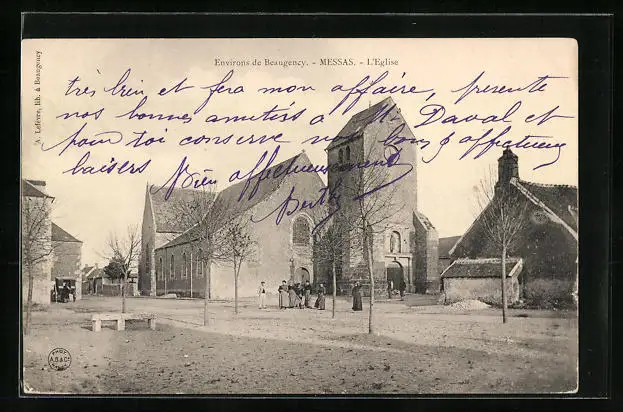 Environs de Beaugency. - MESSAS. - L'Eglise
A. Lefèvre, lib. à Beaugency
très bien et fera mon affaire, présente
nos bonnes amitiers à M. Daval et
pour toi conserve nos bons et affectueux
baisers
Bien affectueusement
Berthe
PHOT
A.B.&C^ie